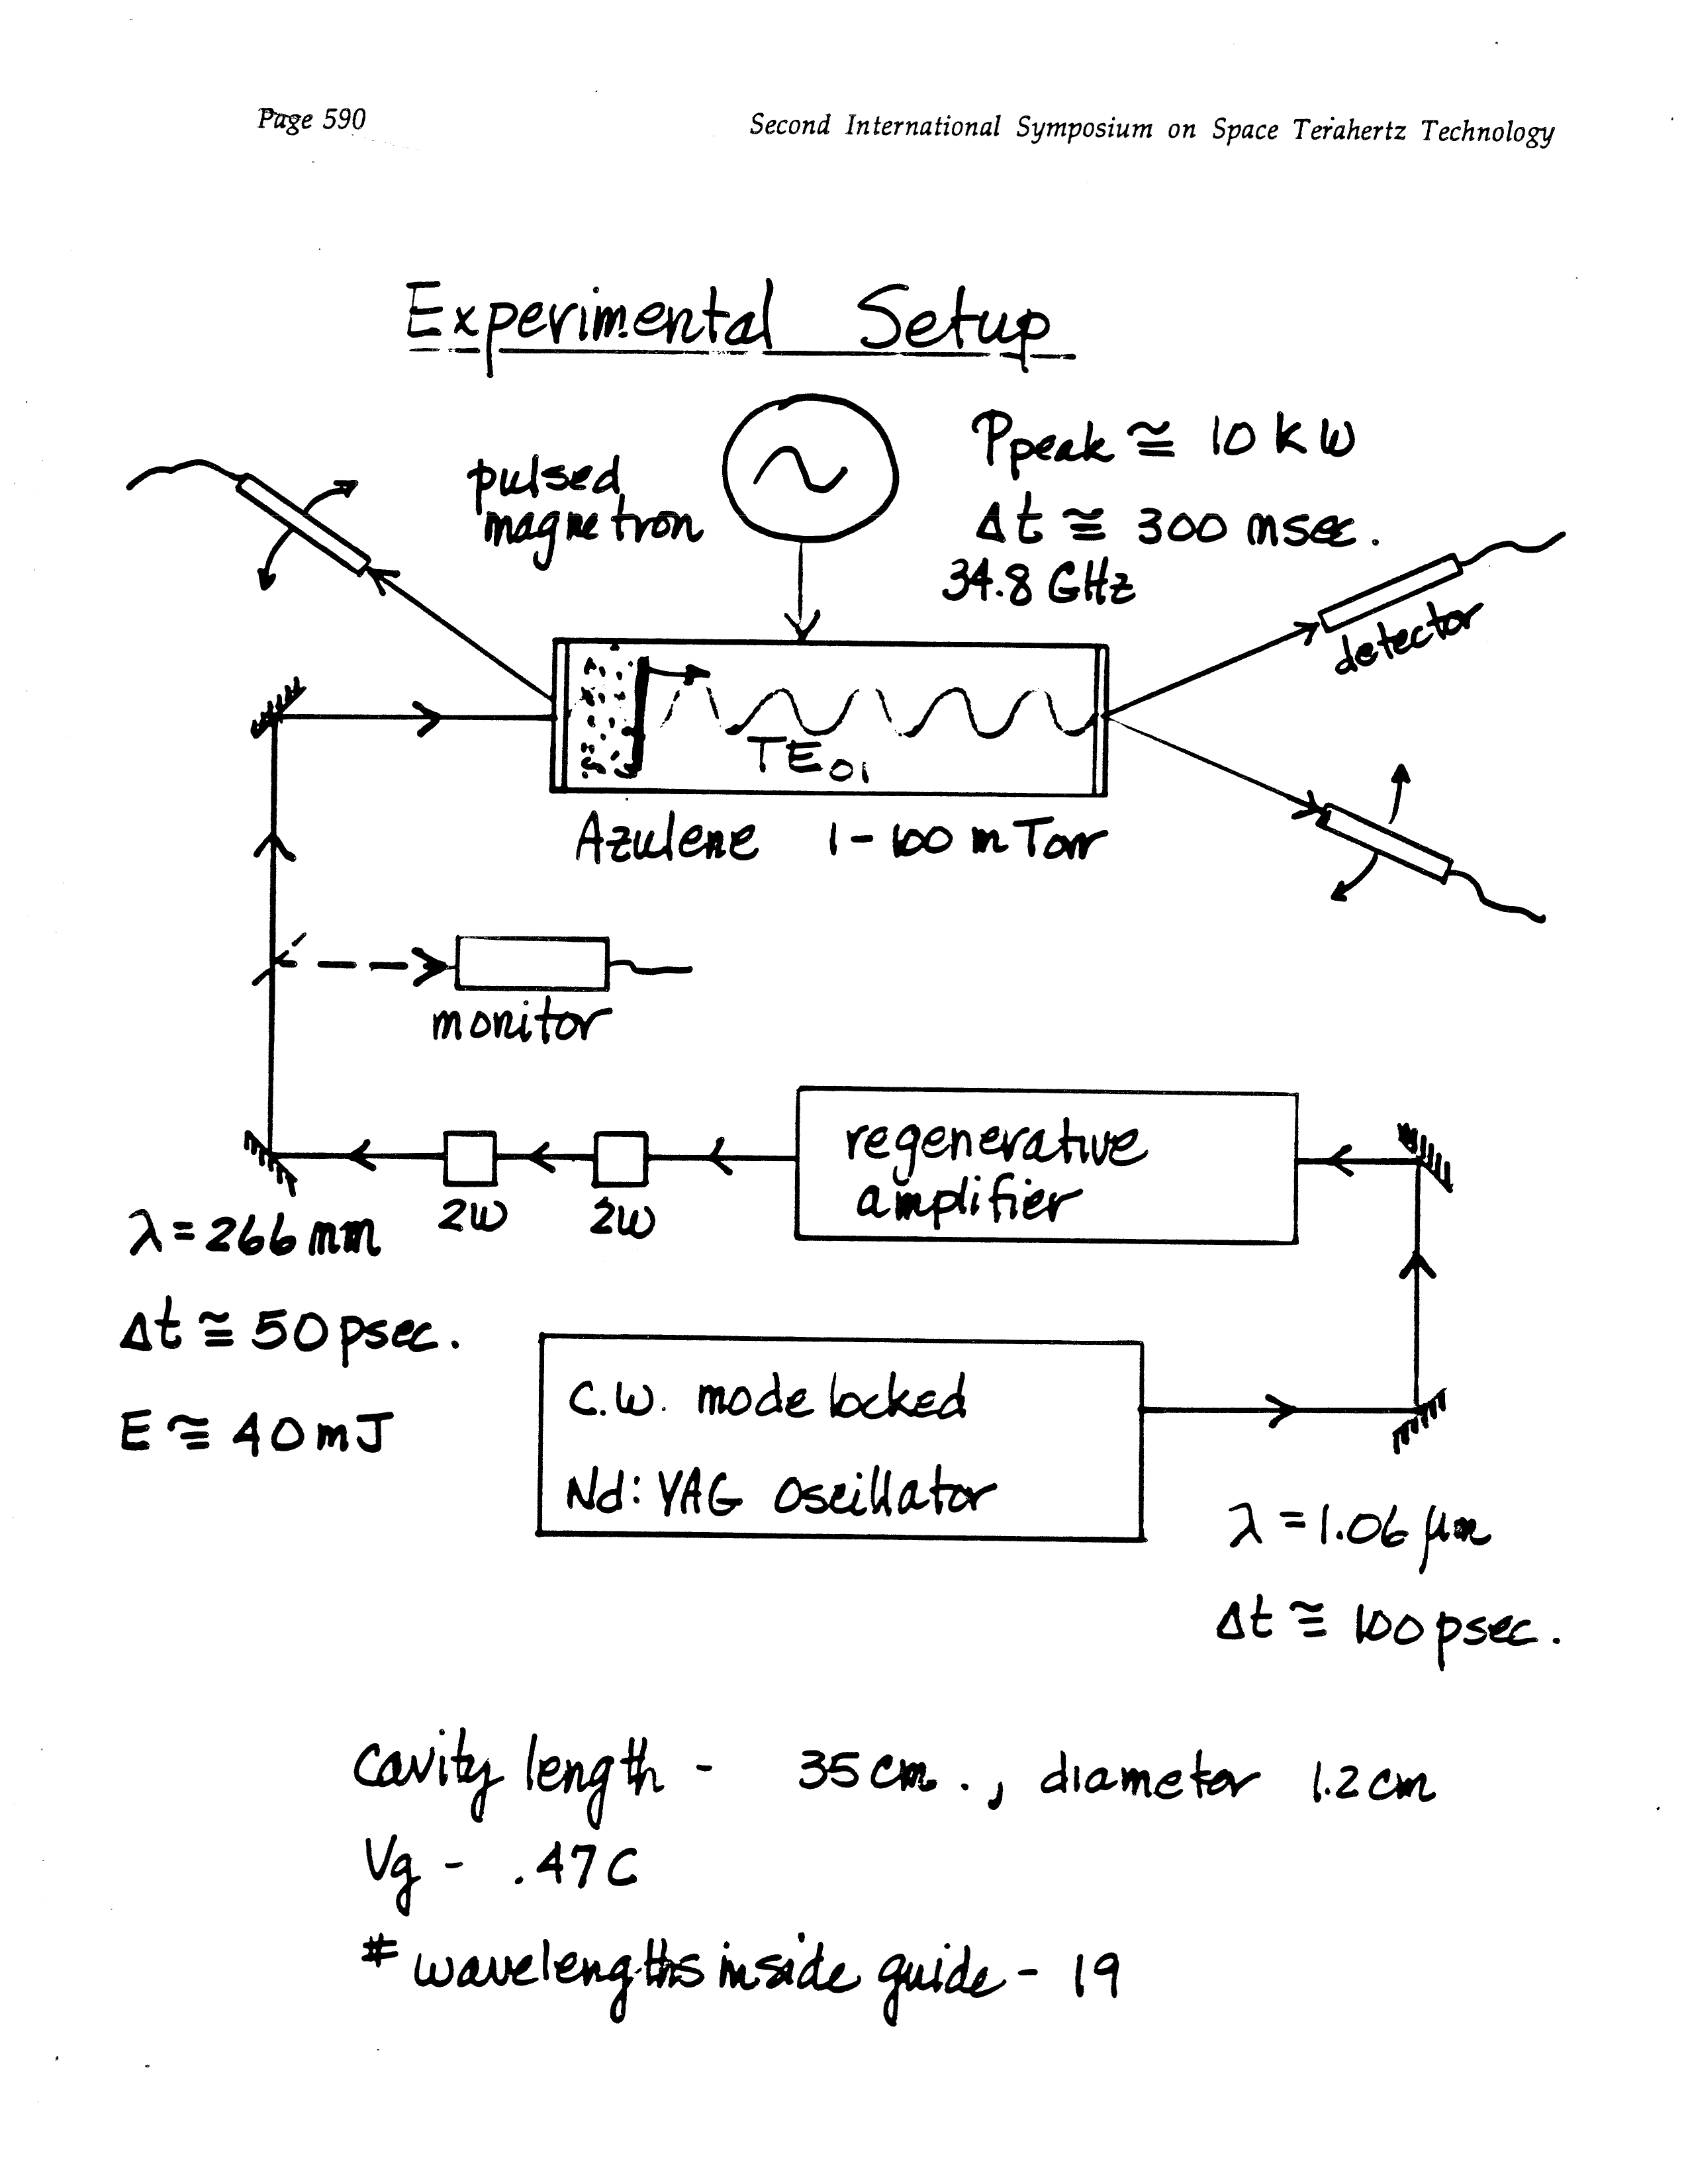 Page 590
Second International Symposium on Space Terahertz Technology
Experimental Setup
pulsed magnetron
Ppeak ≅ 10 kW
Δt ≅ 300 nsec.
34.8 GHz
detector
TE01
Azulene 1-100 mTorr
monitor
regenerative
amplifier
2ω
2ω
λ = 266 nm
Δt ≅ 50 psec.
E ≅ 40 mJ
C.W. mode locked
Nd: YAG oscillator
λ = 1.06 μm
Δt ≅ 100 psec.
Cavity length - 35 cm., diameter 1.2 cm
Vg - .47C
# wavelengths inside guide - 19